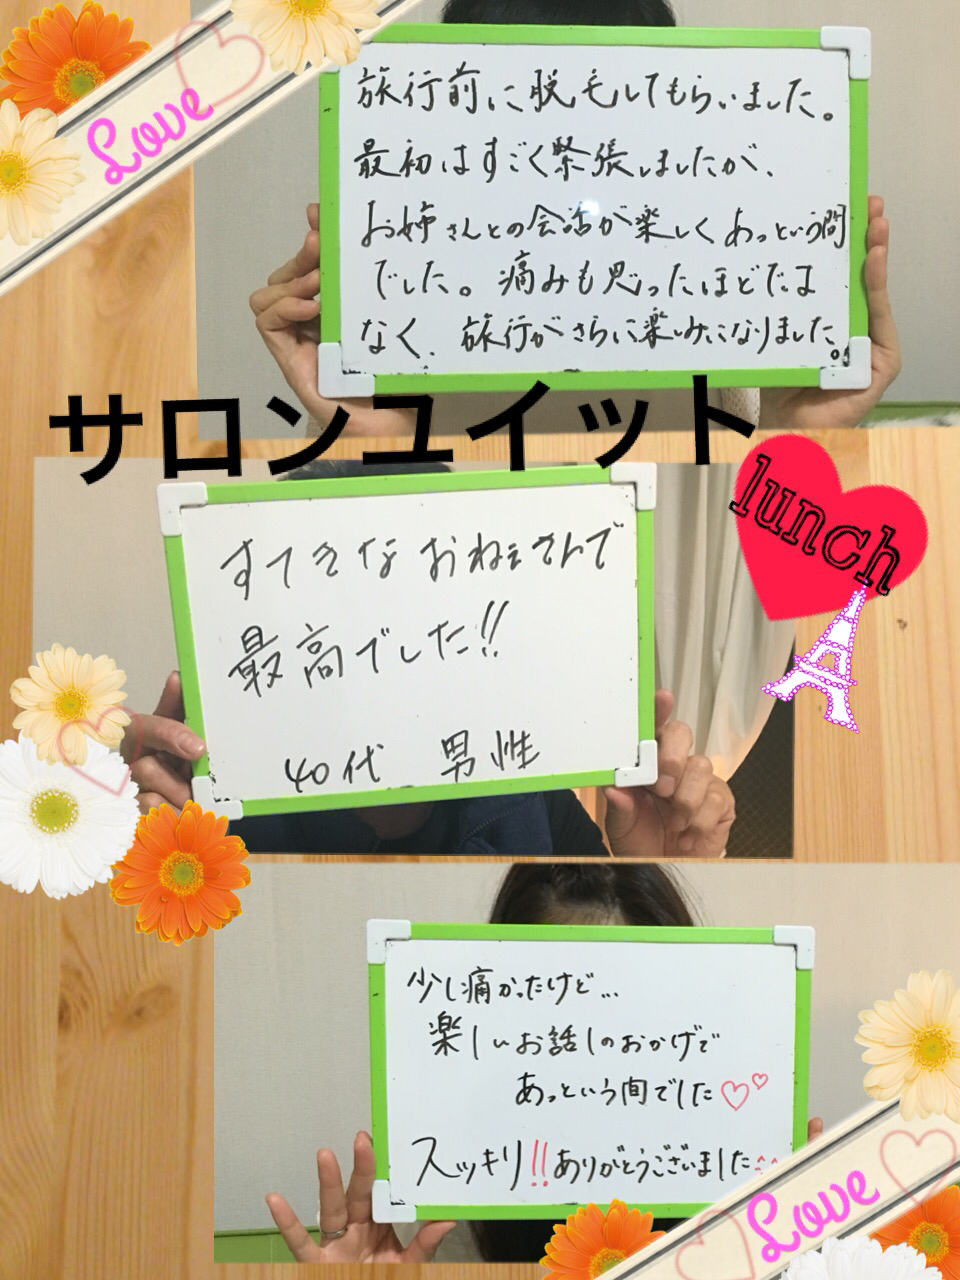 Love
旅行前に脱毛してもらいました。
最初はすごく緊張しましたが、
お姉さんとの会話が楽しくあっという間
でした。痛みも思ったほどでは
なく、旅行がさらに楽しみになりました。
サロンユイット
lunch
すてきなおねぇさんで
最高でした!!
40代 男性
少し痛かったけど…
楽しいお話しのおかげで
あっという間でした♡♡
スッキリ!!ありがとうございました^^
Love